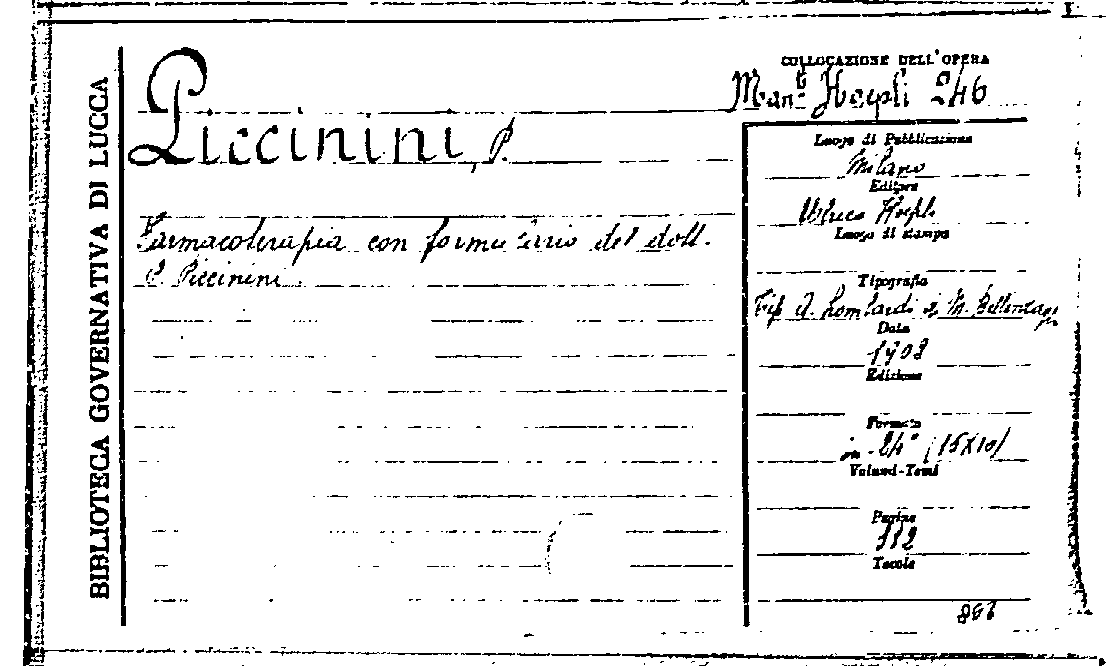 BIBLIOTECA GOVERNATIVA DI LUCCA
Piccinini, P.
Farmacoterapia con formulario del dott.
P. Piccinini.
COLLOCAZIONE DELL'OPERA
Man. Hoepli 246
Luogo di Pubblicazione
Milano
Editore
Ulrico Hoepli
Luogo di stampa
Tipografia
Tip. A. Lombardi e M. Bellinzaghi
Data
1908
Edizione
Formato
in-24° (15X10)
Volumi-Tomi
Pagine
Tavole